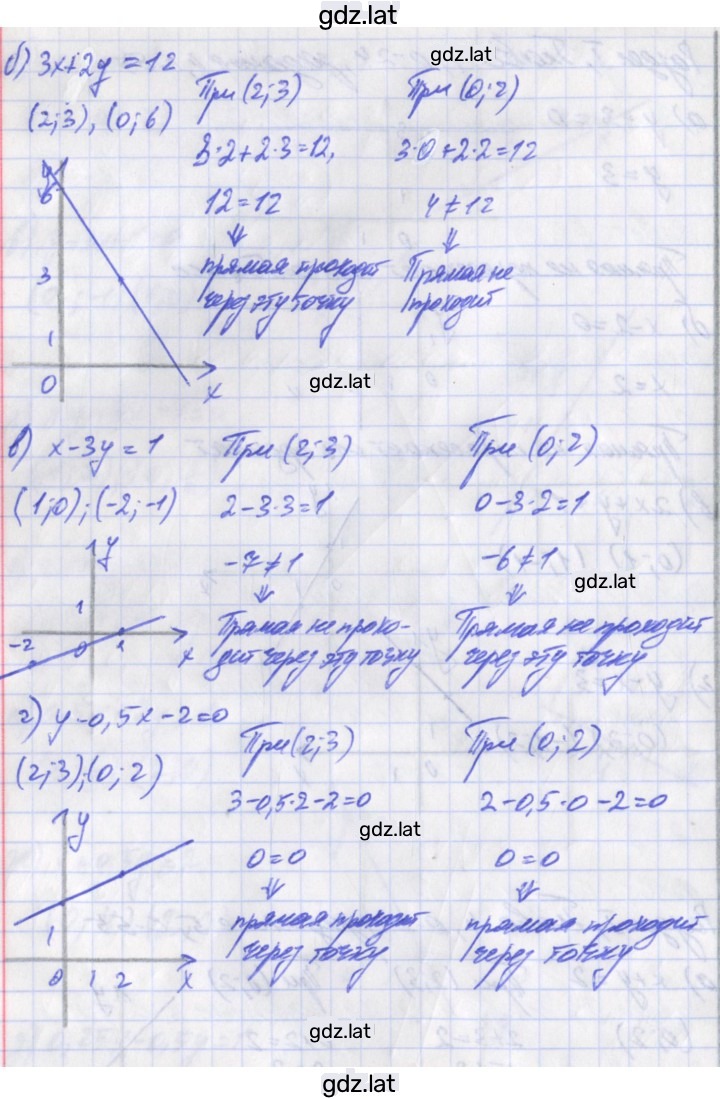 gdz.lat
б) 3x+2y=12
(2;3), (0;6)
При (2;3)
3·2+2·3=12,
12=12
⇓
прямая проходит
через эту точку
gdz.lat
При (0;2)
3·0+2·2=12
4≠12
⇓
Прямая не
проходит
y
6
3
1
0
x
gdz.lat
в) x-3y=1
(1;0);(-2;-1)
При (2;3)
2-3·3=1
-7≠1
⇓
Прямая не прохо-
дит через эту точку
При (0;2)
0-3·2=1
-6≠1
gdz.lat
⇓
Прямая не проходит
через эту точку
y
1
-2
0
1
x
г) y-0,5x-2=0
(2;3),(0;2)
При(2;3)
3-0,5·2-2=0
gdz.lat
0=0
⇓
прямая проходит
через точку
При (0;2)
2-0,5·0-2=0
0=0
⇓
прямая проходит
через точку
y
1
0 1 2 x
gdz.lat
gdz.lat